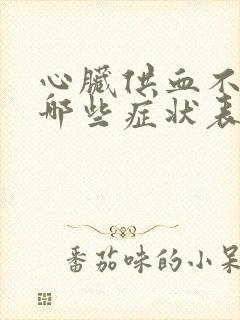 心臟供血不
哪些症狀表
番茄味的小呆